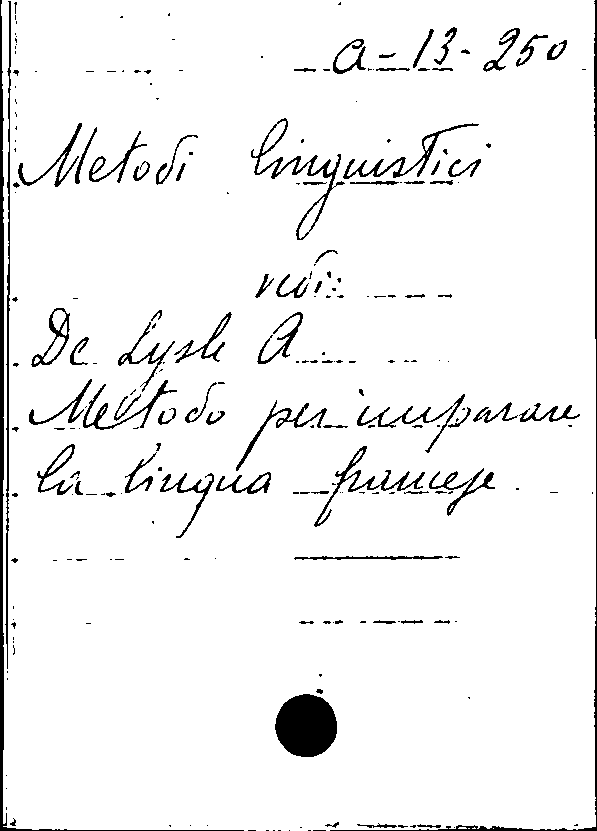 a-13-250
Metodi linguistici
vedi:
De Lysle A.
Metodo per imparare
la lingua francese